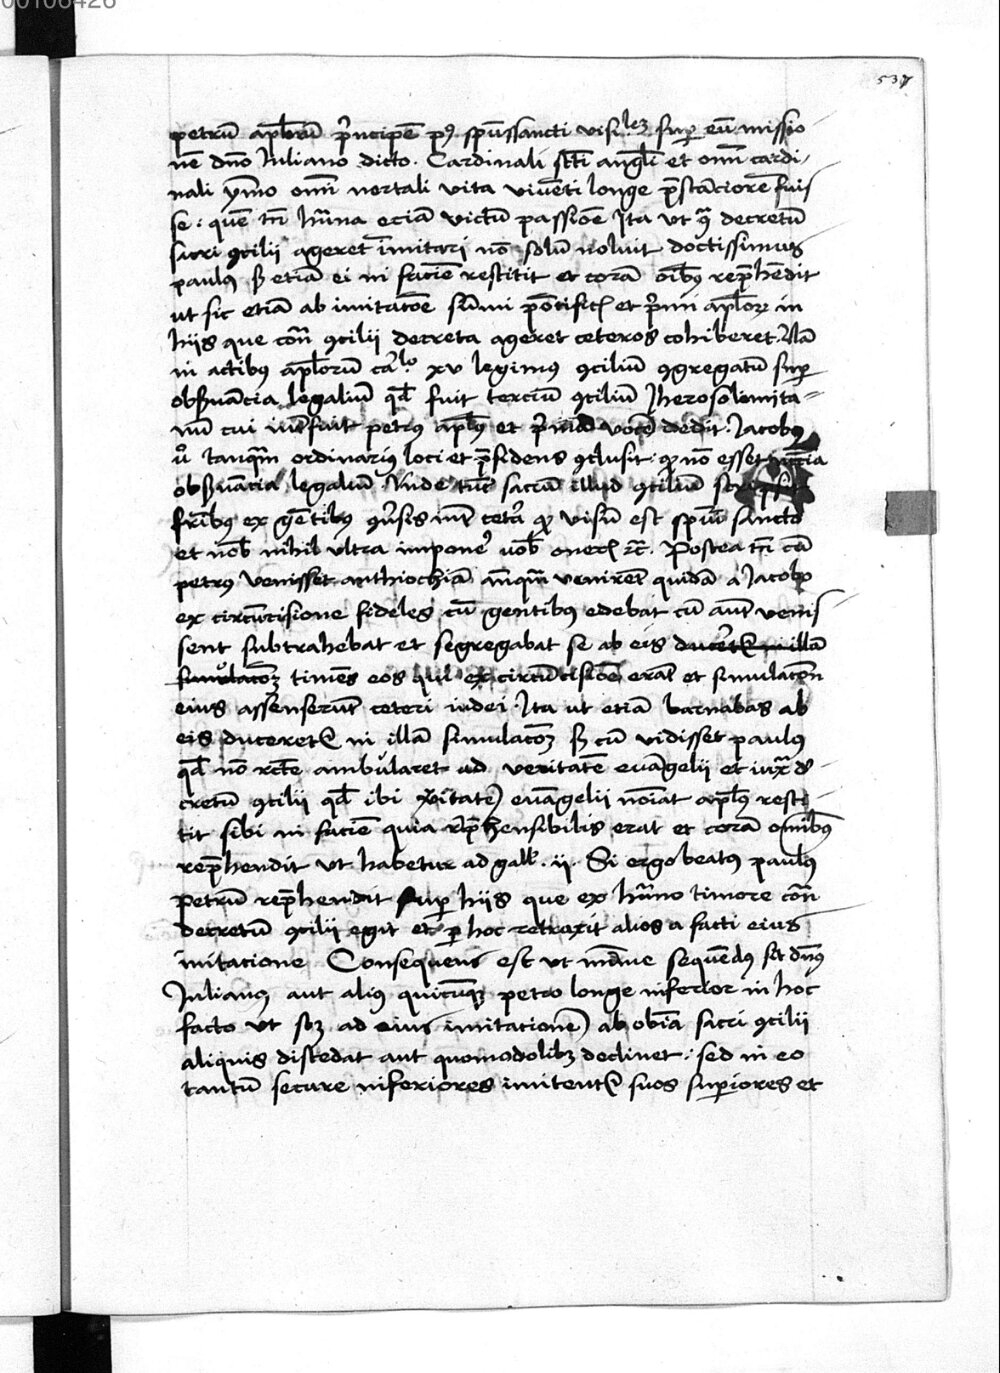 00106426
537
petrū apl̄orū p̄ncipē p9 sp̄ussancti visi^lez sup eū missio
nē dn̄o Juliano dicto. Cardinali sc̄ti angl̄i et om̄i cardi/
nali ymo om̄i mortali vita viuēti longe p̄stāciorē fuis
se : quē tn̄ hūana eciā victū passiōe Ita vt 9ͣ decretū
sacri 9cilii ageret īmitari nō solū noluit doctissimus
paulus sꝫ etiā ei in faciē restitit et corā oīb9 rep̄hēdit
ut sic etiā ab imitacōe sūmi pōtificꝭ et p̄mi apl̄oꝝ in
hiis que con̄ 9cilii decreta ageret ceteros cohiberet. Nā
in actib9 apl̄orū ca^lo. xv legim9 9ciliū 9gregatū sup
obs̄uancia legaliū qd̄ fuit terciū 9ciliū Jherosolimita=
nū cui int̄fuit petr9 apl̄9 et p̄mā vocē dedit. Jacob9
v̊ tanq̄m ordinari9 loci et p̄sidens 9clusit. qꝛ nō esset
obs̄uancia legaliū. Unde tūc sacrū illud 9ciliū scripsit
fr̄ib9 ex gētib9 9ūsis int̄ cetā qꝛ visū est spūi sancto
et nob̄ nihil vltra impone᾽ uob̄ onerꝭ ꝛc̄. Postea tn̄ cū
petr9 venisset anthiochiā. anq̄m venirēt quidā a Jacobo
ex circūcisione fideles cū gentib9 edebat cū aut̄ venis
sent subtrahebat et segregabat se ab eis ducer̄tꝰ in illā
simulacōꝫ timēs eos qui ex circūcisiōe erāt et simulacōn
eius assenserūt ceteri iudei. Ita ut etiā barnabas ab
eis duceretꝰ in illā simulacōꝫ sꝫ cū vidisset paul9
qd̄ nō rc̄te ambularet ad veritatē euāgelii et iuxͣ de
cretū 9cilii qd̄ ibi v̄itatē euāgelii noīat apl̄9 resti
tit sibi in faciē quia rep̄hensibilis erat et corā omib9
rep̄hendit vt habetur ad gall̄. ij. Si ergo beat9 paul9
petrū rep̄hendit sup hiis que ex hūano timore con̄
decretū 9cilii egit et ꝑ hoc retraxit alios a facti eius
imitacione Consequens est vt mīme sequēd9 sit dn̄9
Julian9 aut ali9 quicūqꝫ petro longe inferior in hoc
facto vt scꝫ ad eius imitationē ab obīa sacri 9cilii
aliquis discedat aut quomodolibꝫ declinet : sed in eo
tantū secure inferiores imitentꝰ suos superiores et